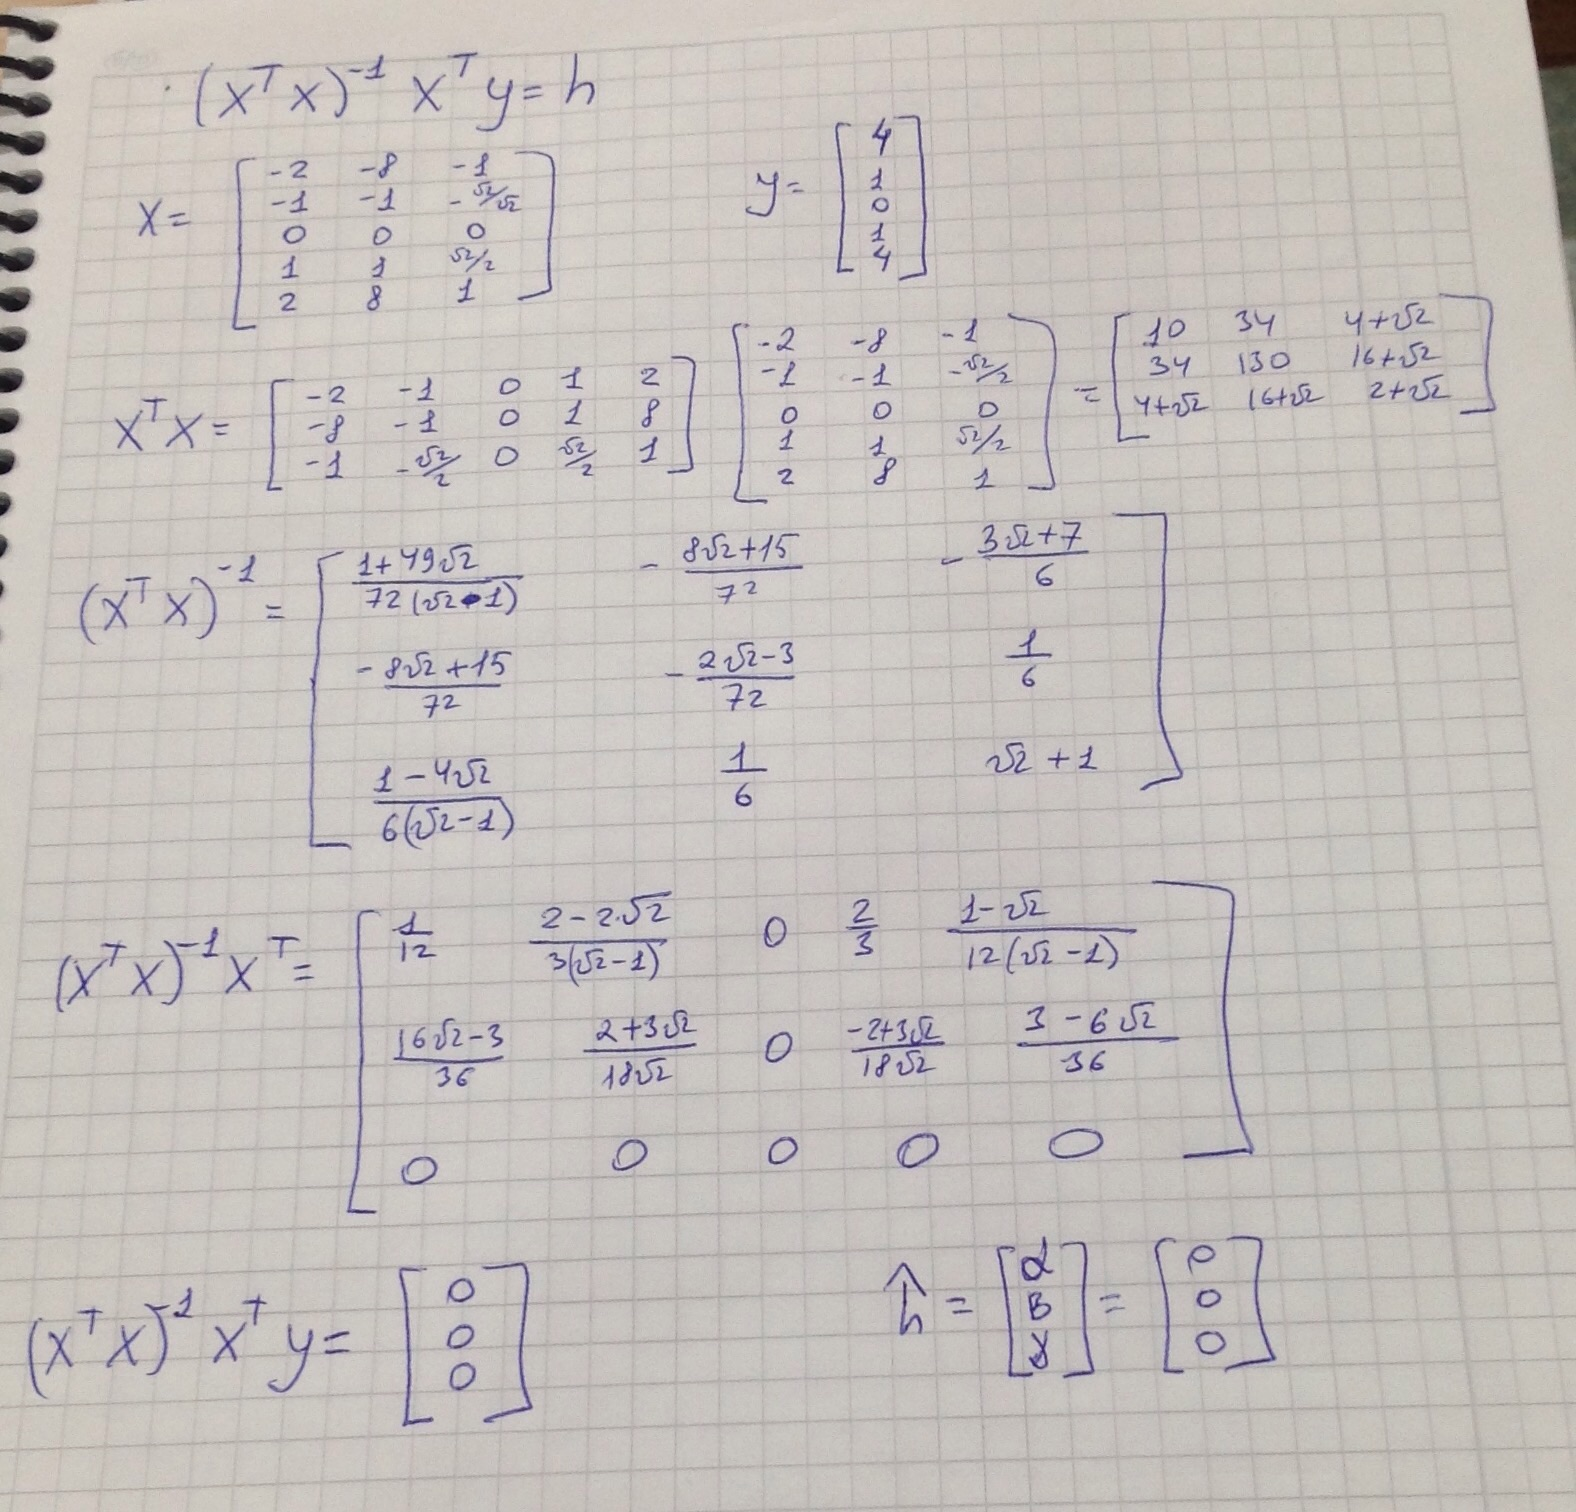 (X^T X)^-1 X^T y = h
X = [ -2 -8 -1
-1 -1 -√2/√2
0 0 0
1 1 √2/2
2 8 1 ]
y = [ 4
1
0
1
4 ]
X^T X = [ -2 -1 0 1 2
-8 -1 0 1 8
-1 -√2/2 0 √2/2 1 ]
[ -2 -8 -1
-1 -1 -√2/2
0 0 0
1 1 √2/2
2 8 1 ]
= [ 10 34 4+√2
34 130 16+√2
4+√2 16+√2 2+√2 ]
(X^T X)^-1 = [ (1+49√2)/(72(√2-1)) -(8√2+15)/72 -(3√2+7)/6
-(8√2+15)/72 -(2√2-3)/72 1/6
(1-4√2)/(6(√2-1)) 1/6 √2+1 ]
(X^T X)^-1 X^T = [ 1/12 (2-2·√2)/(3(√2-1)) 0 2/3 (1-√2)/(12(√2-1))
(16√2-3)/36 (2+3√2)/(18√2) 0 (-2+3√2)/(18√2) (3-6√2)/36
0 0 0 0 0 ]
(X^T X)^-1 X^T y = [ 0
0
0 ]
ĥ = [ α
β
γ ] = [ 0
0
0 ]